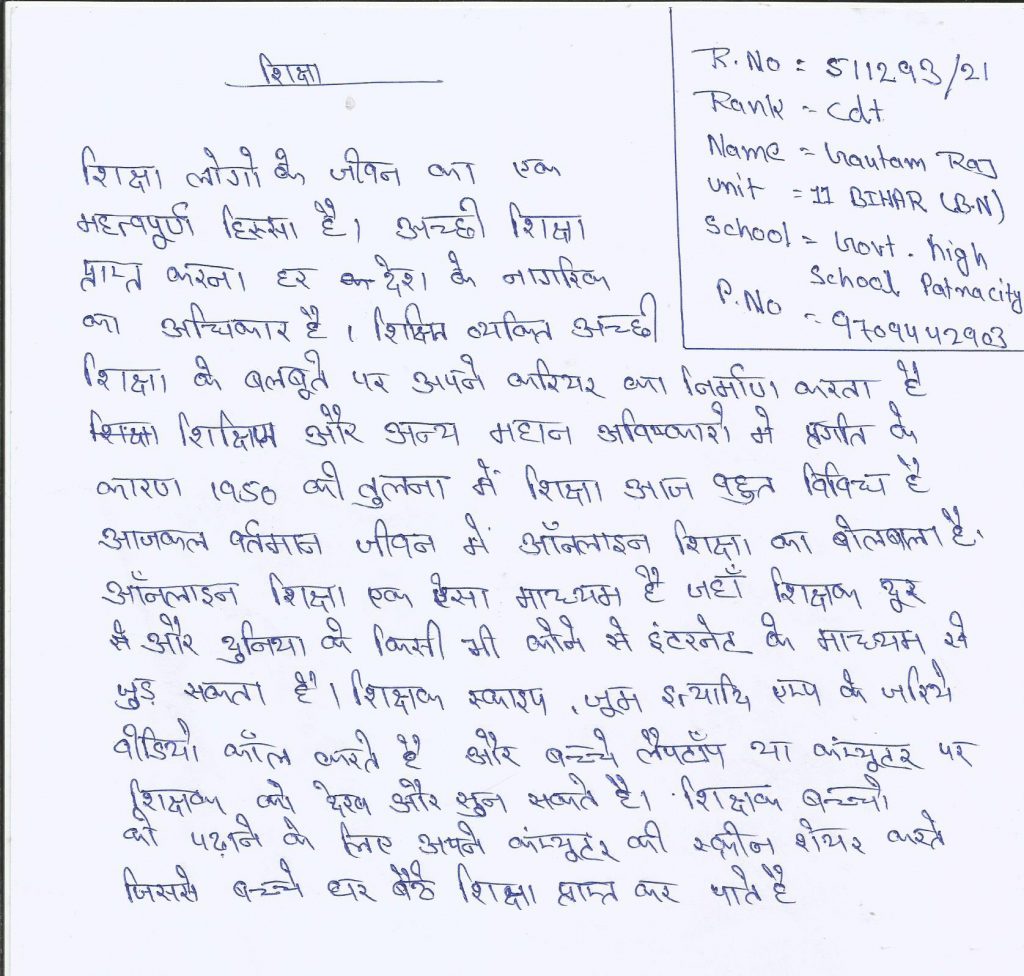 शिक्षा
R.No = 511293/21
Rank = Cdt
Name = Gautam Raj
Unit = 11 BIHAR (B.N)
School = Govt. high
School Patnacity
P.No = 9709442903
शिक्षा लोगो के जीवन का एक
महत्वपूर्ण हिस्सा है। अच्छी शिक्षा
प्राप्त करना हर देश के नागरिक
का अधिकार है। शिक्षित व्यक्ति अच्छी
शिक्षा के बलबूते पर अपने करियर का निर्माण करता है
शिक्षा शिक्षिण और अन्य महान अविष्कारो मे प्रगति के
कारण 1950 की तुलना में शिक्षा आज बहुत विविध है
आजकल वर्तमान जीवन में ऑनलाइन शिक्षा का बोलबाला है.
ऑनलाइन शिक्षा एक ऐसा माध्यम है जहाँ शिक्षक दूर
से और दुनिया के किसी भी कोने से इंटरनेट के माध्यम से
जुड़ सकता है। शिक्षक स्काइप , जूम इत्यादि एप्प के जरिये
वीडियो कॉल करते है और बच्चे लैपटॉप या कंप्यूटर पर
शिक्षक को देख और सुन सकते है। शिक्षक बच्चो
को पढ़ाने के लिए अपने कंप्यूटर की स्क्रीन शेयर करते
जिससे बच्चे घर बैठे शिक्षा प्राप्त कर पाते है